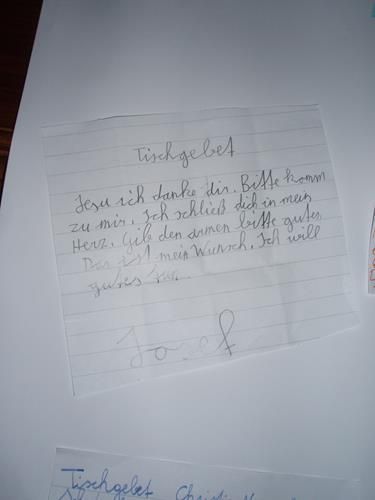 Tischgebet
Jesu ich danke dir. Bitte komm
zu mir. Ich schließ dich in mein
Herz. Gib den armen bitte gutes,
Das ist mein Wunsch. Ich will
gutes tun.
Josef
Tischgebet Christi